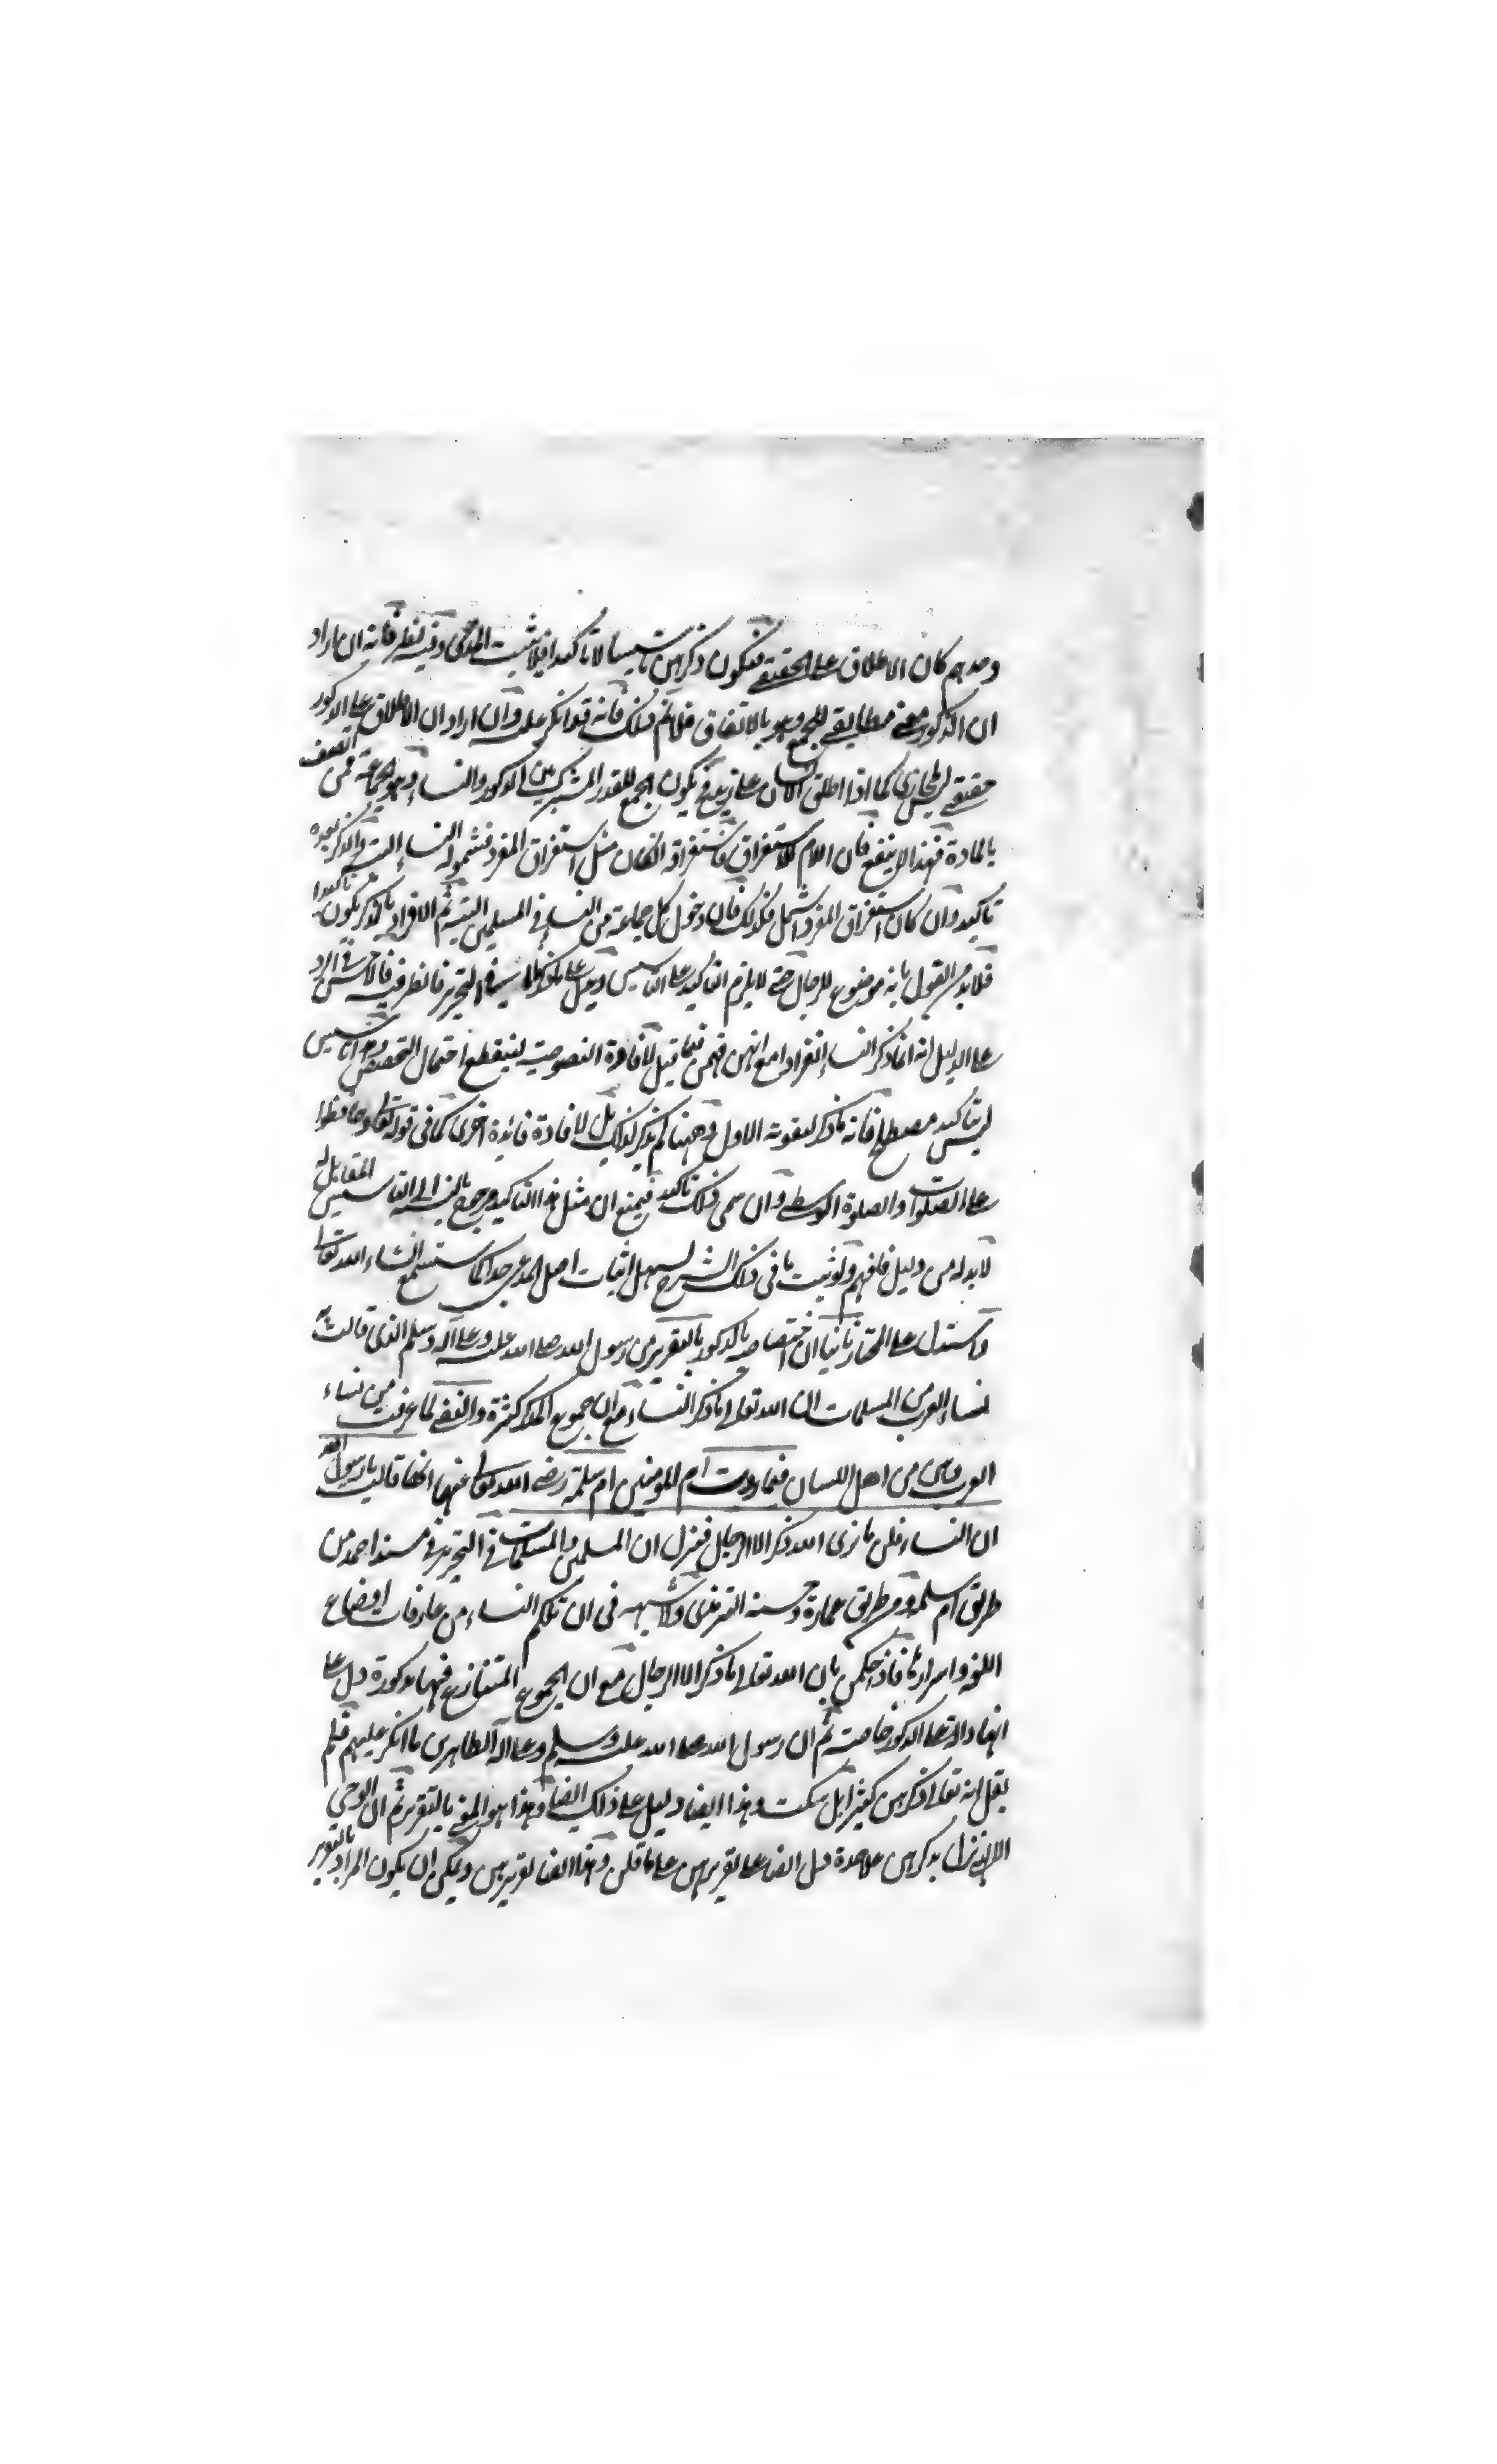 وحدهم كان الاطلاق على الحقيقي فيكون ذكرهن تاسيسا لا تاكيدا فلا يثبت المدعى وفيه نظر فانه ان اراد
ان الذكور معنى مطابقي للجمع وهو بالاتفاق فلا نم ذلك فانه قد انكر عليه وان اراد ان الاطلاق على الذكور
حقيقي لا مجازي كما اذا اطلق الانسان على زيد فح يكون الجمع للقدر المشترك بين الذكور والنساء وهو الجماعة ممن اتصف
بالمادة فهذا لا ينفع فان اللام للاستغراق فاستغراقه ان كان مثل استغراق المفرد فشموله النساء البتة والذكر بعده
تاكيد وان كان استغراق المفرد اشمل فكذلك فان دخول كل جماعة من النساء في المسلمين البتة ثم الافراد بالذكر يكون تاكيدا
فلا بد من القول بانه موضوع للرجال حتى لا يلزم التاكيد على التاسيس لا سيما في التحرير فانظر فيه فالاحسن في الرد
على الدليل انه انما ذكر النساء انفرادا مع انهن فهمن فيما قبل لافادة النصوصية لينقطع احتمال التخصيص وهو تاسيس
ليس بتاكيد مصطلح فانه ما ذكر لتقوية الاول وههنا لم يذكر لذلك بل لافادة فائدة اخرى كما في قوله تعالى وحافظوا
على الصلوات والصلوة الوسطى وان سمى ذلك تاكيد فيمنع ان مثل هذا التاكيد مرجوح بالنسبة الى التاسيس المقابل له
لا بد له من دليل فافهم ولو ثبت ما في ذلك الشرح لسهل اثبات اصل المدعى جدا كما ستسمع انشاء الله تعالى
واستدل على المختار ثانيا ان اختصاصه بالذكور بالتقرير من رسول الله صلى الله عليه وعلى آله وسلم الذى قالت به
نساء العرب من المسلمات ان الله تعالى ما ذكر النساء مع ان جموع المذكر كثيرة والنفي لما عرفت من نساء
العرب وهن من اهل اللسان فيما روت ام المومنين ام سلمة رضى الله تعالى عنها انها قالت يا رسول الله
ان النساء قلن ما نرى الله ذكر الا الرجال فنزل ان المسلمين والمسلمات في التحرير في مسند احمد من
طريق ام سلمة ومن طريق عمارة وحسنه الترمذى ولا شبهة فى ان تكلم النساء من عارفات اوضاع
اللغة واسرارها فاذا حكمن بان الله تعالى ما ذكر الا الرجال مع ان الجموع المتنازع فيها مذكورة دل على
انها دالة على الذكور خاصة ثم ان رسول الله صلى الله عليه وسلم وعلى آله الطاهرين ما انكر عليهم فلم
يقل انه تعالى ذكرهن كثيرا بل سكت وهذا ايضا دليل على ذلك ايضا وهذا هو المعنى بالتقرير ثم ان الوحى
الالهى نزل بذكرهن علاحدة دل ايضا على تقريرهن على ما قلن وهذا ايضا تقريرهن ويمكن ان يكون المراد بالتقرير